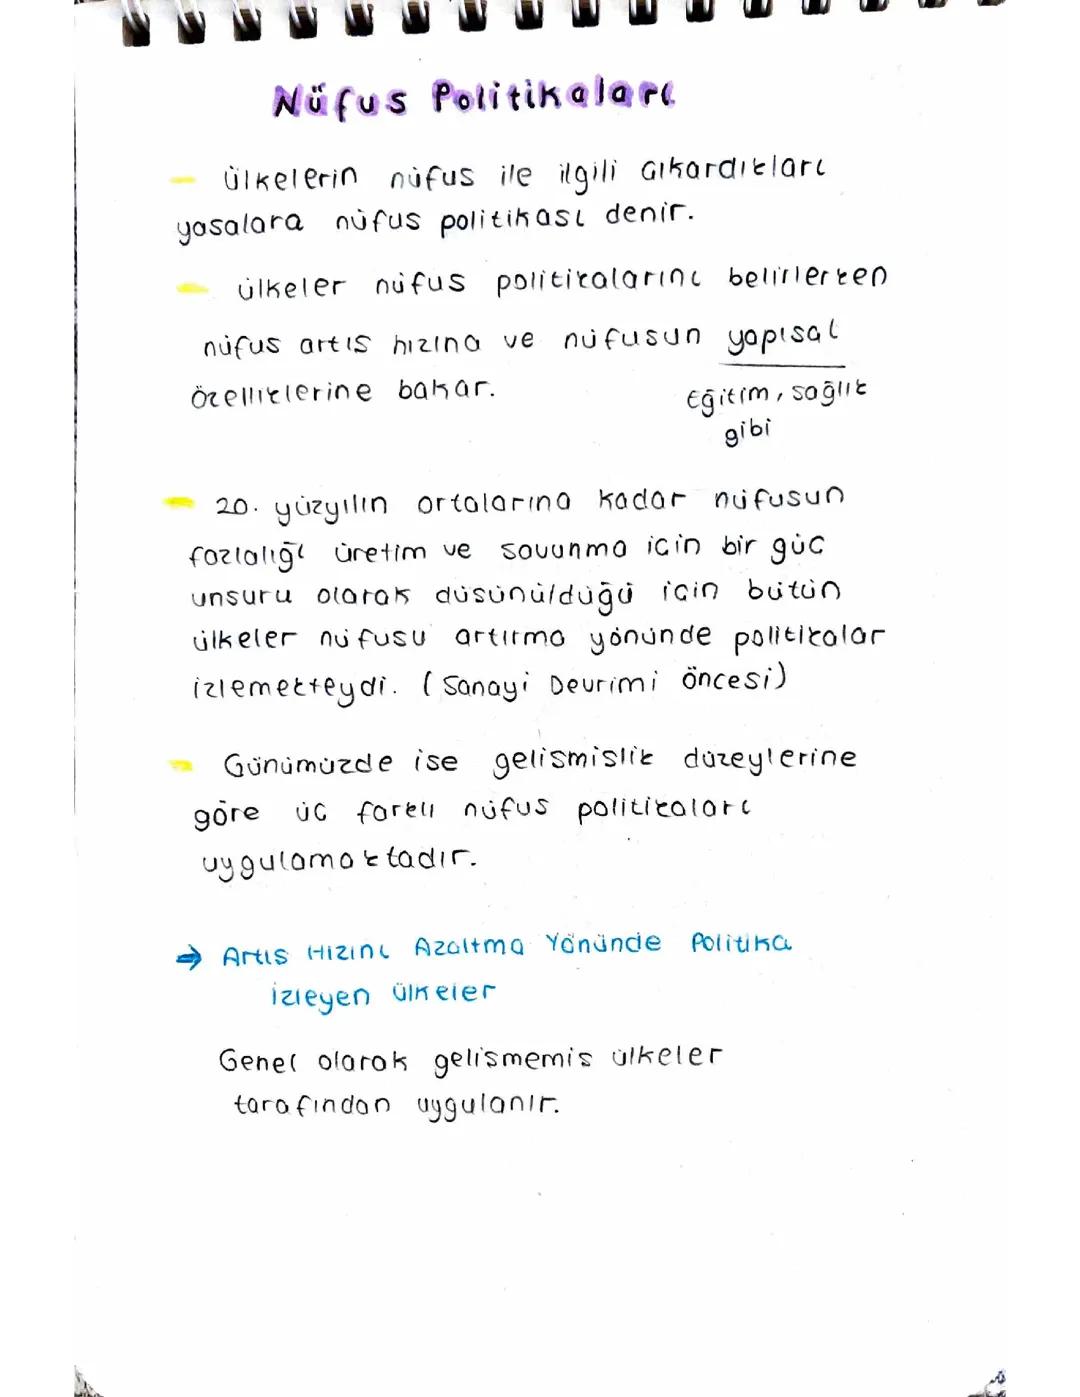 Nüfus Politikaları
- Ülkelerin nüfus ile ilgili çıkardıkları
yasalara nüfus politikası denir.
- ülkeler nüfus politikalarını belirlerken
nüfus artış hızına ve nüfusun yapısal
özelliklerine bakar.
Eğitim, sağlık
gibi
- 20. yüzyılın ortalarına kadar nüfusun
fazlalığı üretim ve savunma için bir güç
unsuru olarak düşünüldüğü için bütün
ülkeler nüfusu artırma yönünde politikalar
izlemekteydi. (Sanayi Devrimi öncesi)
- Günümüzde ise gelişmişlik düzeylerine
göre üç farklı nüfus politikaları
uygulamaktadır.
→ Artış Hızını Azaltma Yönünde Politika
izleyen ülkeler
Genel olarak gelişmemiş ülkeler
tarafından uygulanır.